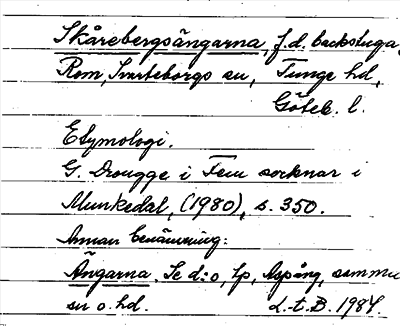 Skårebergsängarna, f.d. backstuga,
Rom, Svarteborgs sn, Tunge hd,
Göteb. l.
Etymologi.
G. Drougge i Fem socknar i
Munkedal, (1980), s. 350.
Annan benämning:
Ängarna. Se d:o, tp, Aspång, samma
sn o. hd. L-t. B. 1984.